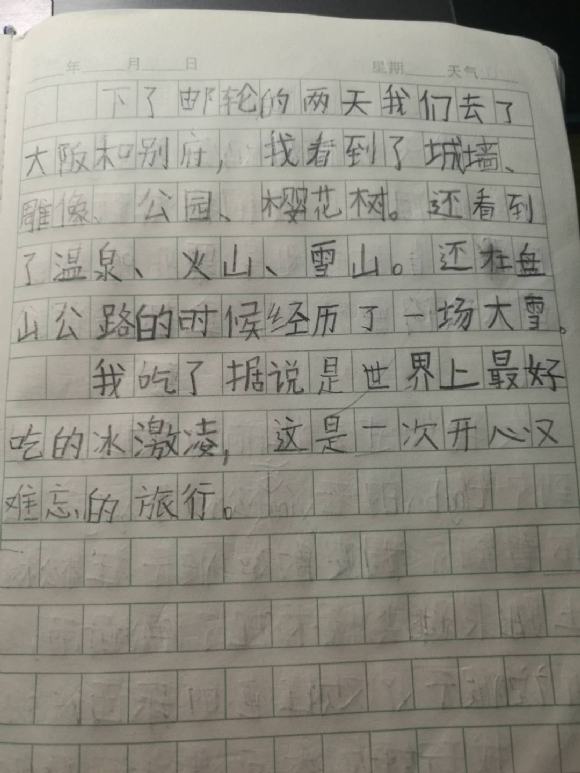 年 月 日 星期 天气
下了邮轮的两天我们去了
大阪和别府，我看到了城墙、
雕像、公园、樱花树。还看到
了温泉、火山、雪山。还在盘
山公路的时候经历了一场大雪。
我吃了据说是世界上最好
吃的冰激凌，这是一次开心又
难忘的旅行。